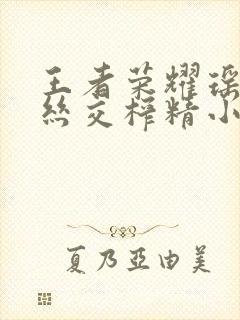 王者荣耀瑶
丝交榨精小
夏乃亞由美